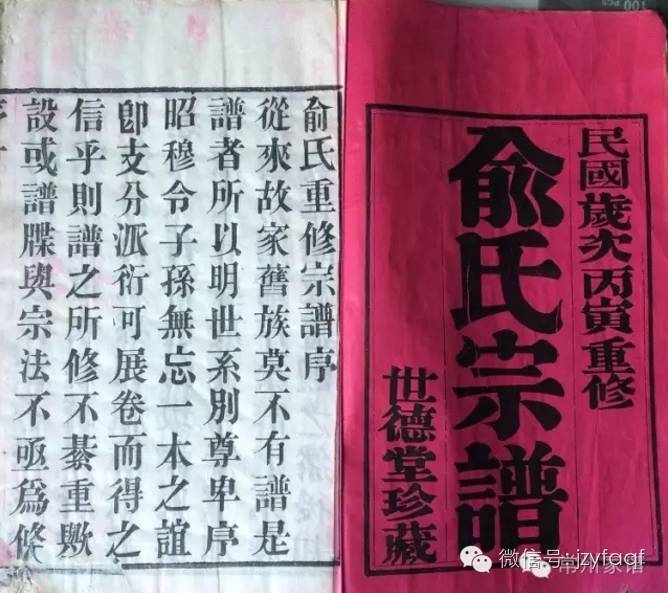 民國歲次丙寅重修
俞氏宗譜
世德堂珍藏
俞氏重修宗譜序
從來故家舊族莫不有譜是
譜者所以明世系別尊卑序
昭穆令子孫無忘一本之誼
卽支分派衍可展卷而得之
信乎則譜之所修不綦重歟
設或譜牒與宗法不亟爲修
微信号: jzyfaqf
常州家谱
100 PCS